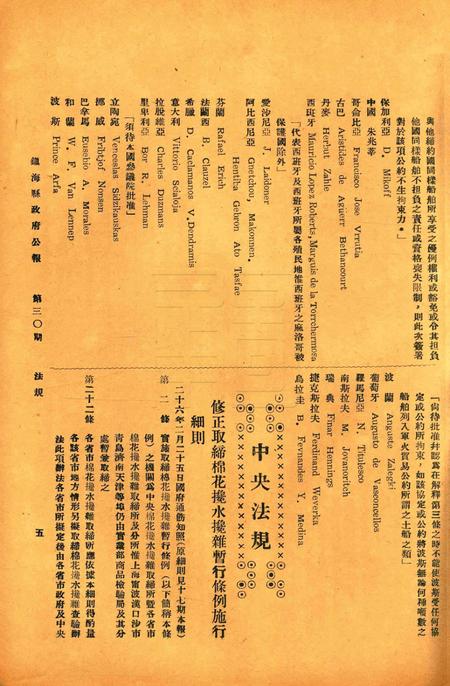 與他締約國同樣船舶所享受之優例權利或豁免或令其担負
他國同樣船舶不担負之責任或資格喪失限制，則此次簽署
對於該項公約不生拘束力。」
保加利亞 D. Mikoff
中國 朱兆莘
哥侖比亞 Francisco Jose Vrrutia
古巴 Aristides de Aguerr Bethancourt
丹麥 Herbut Zahle
西班牙 Mauricio Lopez Roberts, Marguis de la Torrehermosa
「代表西班牙及西班牙所屬各殖民地惟西班牙之摩洛哥被
保護國除外」
愛沙尼亞 J. Laidoner
阿比西尼亞 Gnetchou, Makonnen.
Hentiha Gebron Ato Tasfae
芬蘭 Rafael Erich
法蘭西 B. Clauzel
希臘 D. Caclamanos V. Dendramis
意大利 Vittorio Scialoga
拉脫維亞 Charles Duzmans
里卑利亞 Bor R. Lehman
「須待本國參議院批准」
立陶宛 Venceslas Sidzikauskas
挪威 Fribtjof Nonsen
巴拿馬 Eusebio A. Morales
和蘭 W. F. Van Lennep
波斯 Prince Arfa
「尚待批准并認爲在解釋第三條之時不能使波斯受任何協
定或公約所拘束，如該協定或公約將波斯無論何種噸數之
船舶列入軍火貿易公約所謂之土船之類」
波蘭 Anguste Zalegki
葡萄牙 Augusto de Vasconcellos
羅馬尼亞 N. Titulesco
南斯拉夫 M. Jovanoritch
瑞典 Einar Hennings
捷克斯拉夫 Ferdinand Weverka
烏拉圭 B. Fevnandes Y. Medina
中央法規
修正取締棉花攙水攙雜暫行條例施行
細則
二十六年二月二十五日國府通飭知照(原細則見十七期本報)
第一條 實施取締棉花攙水攙雜暫行條例(以下簡稱本條
例)之機關爲中央棉花攙水攙雜取締所暨各省市
棉花攙水攙雜取締所及分所惟上海甯波漢口沙市
青島濟南天津等埠仍由實業部商品檢驗局及其分
處暫兼取締之
第二十二條 各省市棉花攙水攙雜取締所應依據本細則得酌量
各該省市地方情形另擬取締棉花攙水攙雜查驗辦
法此項辦法各省市所擬定後由各省市政府及中央
鎮海縣政府公報 第三〇期 法規 五